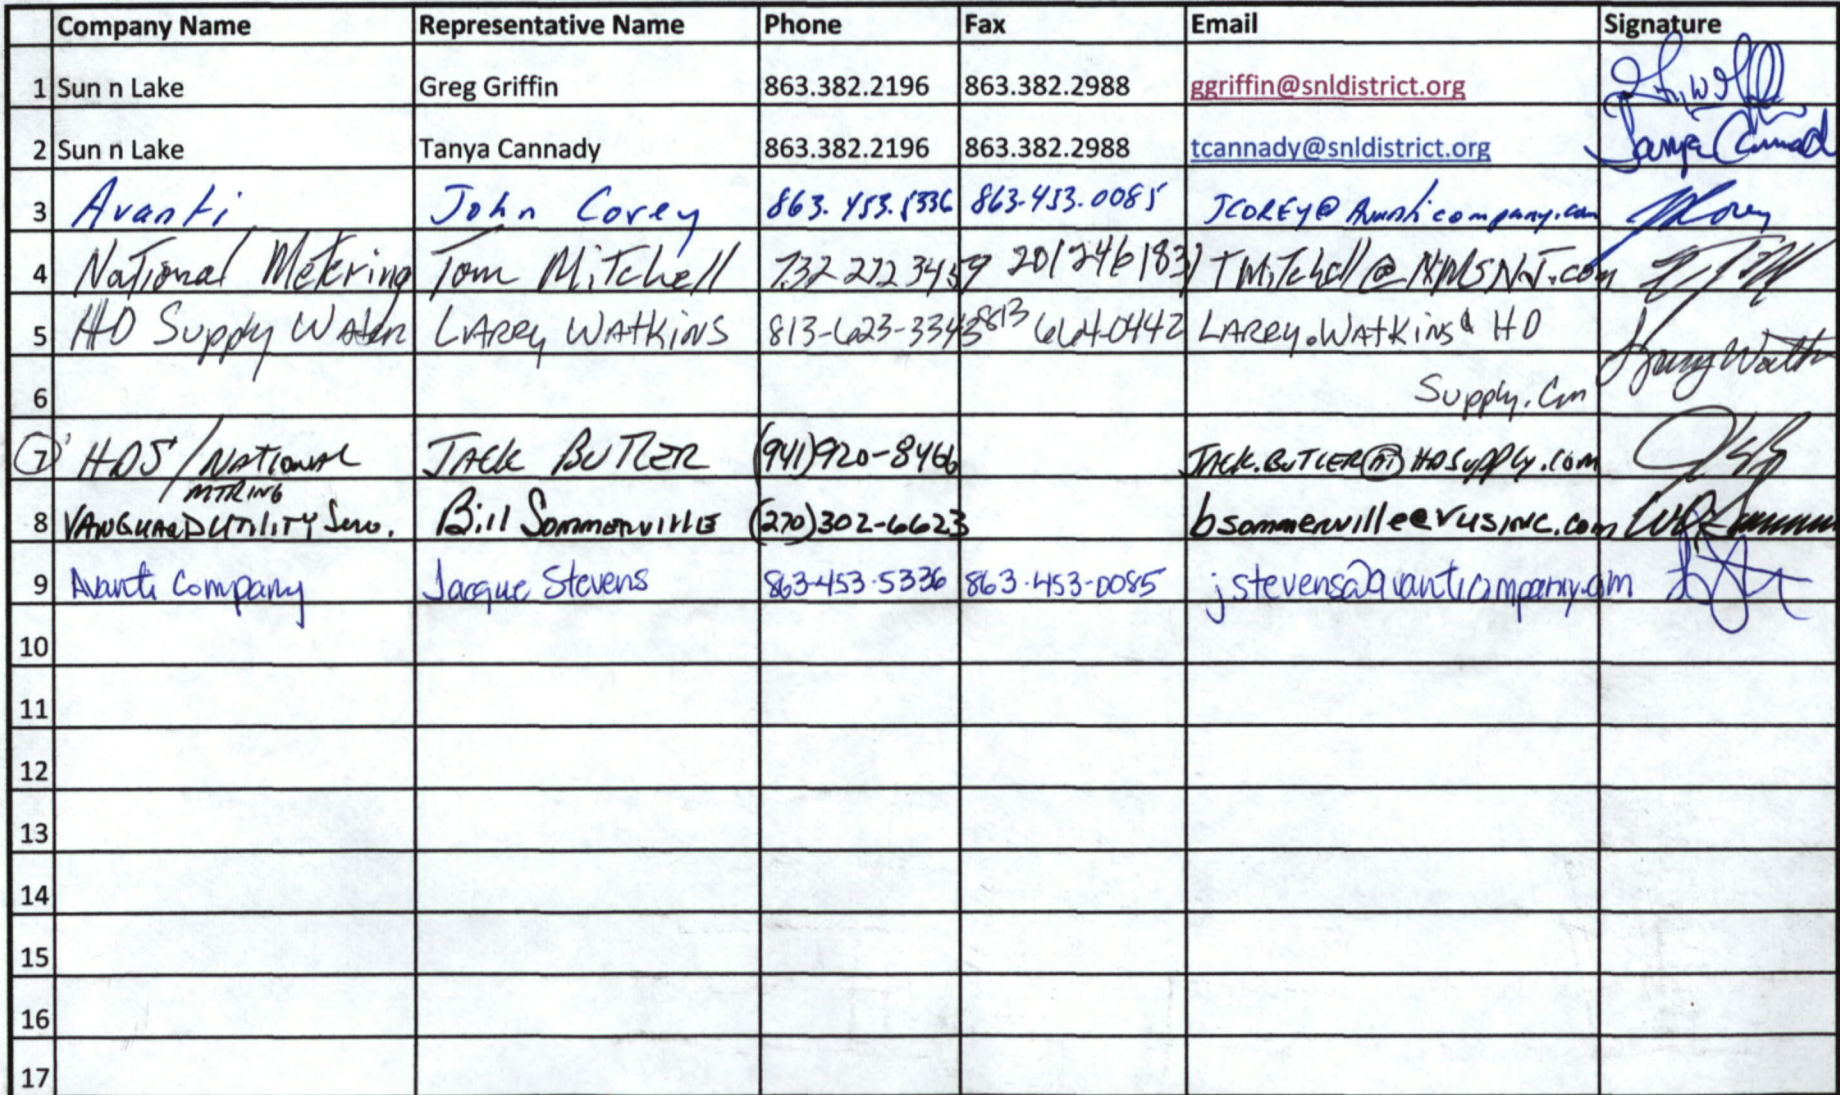 Company Name Representative Name Phone Fax Email Signature
1 Sun n Lake Greg Griffin 863.382.2196 863.382.2988 ggriffin@snldistrict.org
2 Sun n Lake Tanya Cannady 863.382.2196 863.382.2988 tcannady@snldistrict.org Tanya Cannad
3 Avanti John Corey 863.453.5336 863.453.0085 JCOREY@Avanticompany.com JCorey
4 National Metering Tom Mitchell 732 272 3459 201 246 1831 TMitchell@NMSNJ.com
5 HD Supply Water LARRY WATKINS 813-623-3343 813 664-0442 LARRY.WATKINS@HD
6 Supply.Com
7 HDS/NATIONAL JACK BUTLER (941)920-8466 JACK.BUTLER@HDSUPPLY.COM
MTRING
8 VANGUARD UTILITY Serv. Bill Sommerville (270)302-6623 bsommerville@vusinc.com
9 Avanti Company Jacque Stevens 863-453-5336 863-453-0085 jstevens@avanticompany.com
10
11
12
13
14
15
16
17